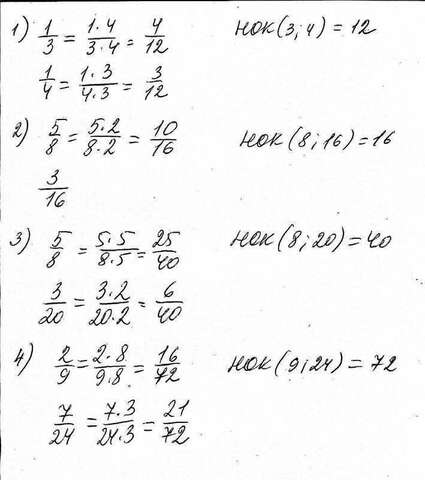 1) 1/3 = 1·4/3·4 = 4/12 НОК(3;4) = 12
1/4 = 1·3/4·3 = 3/12
2) 5/8 = 5·2/8·2 = 10/16 НОК(8;16)=16
3/16
3) 5/8 = 5·5/8·5 = 25/40 НОК(8;20)=40
3/20 = 3·2/20·2 = 6/40
4) 2/9 = 2·8/9·8 = 16/72 НОК(9;24) = 72
7/24 = 7·3/24·3 = 21/72